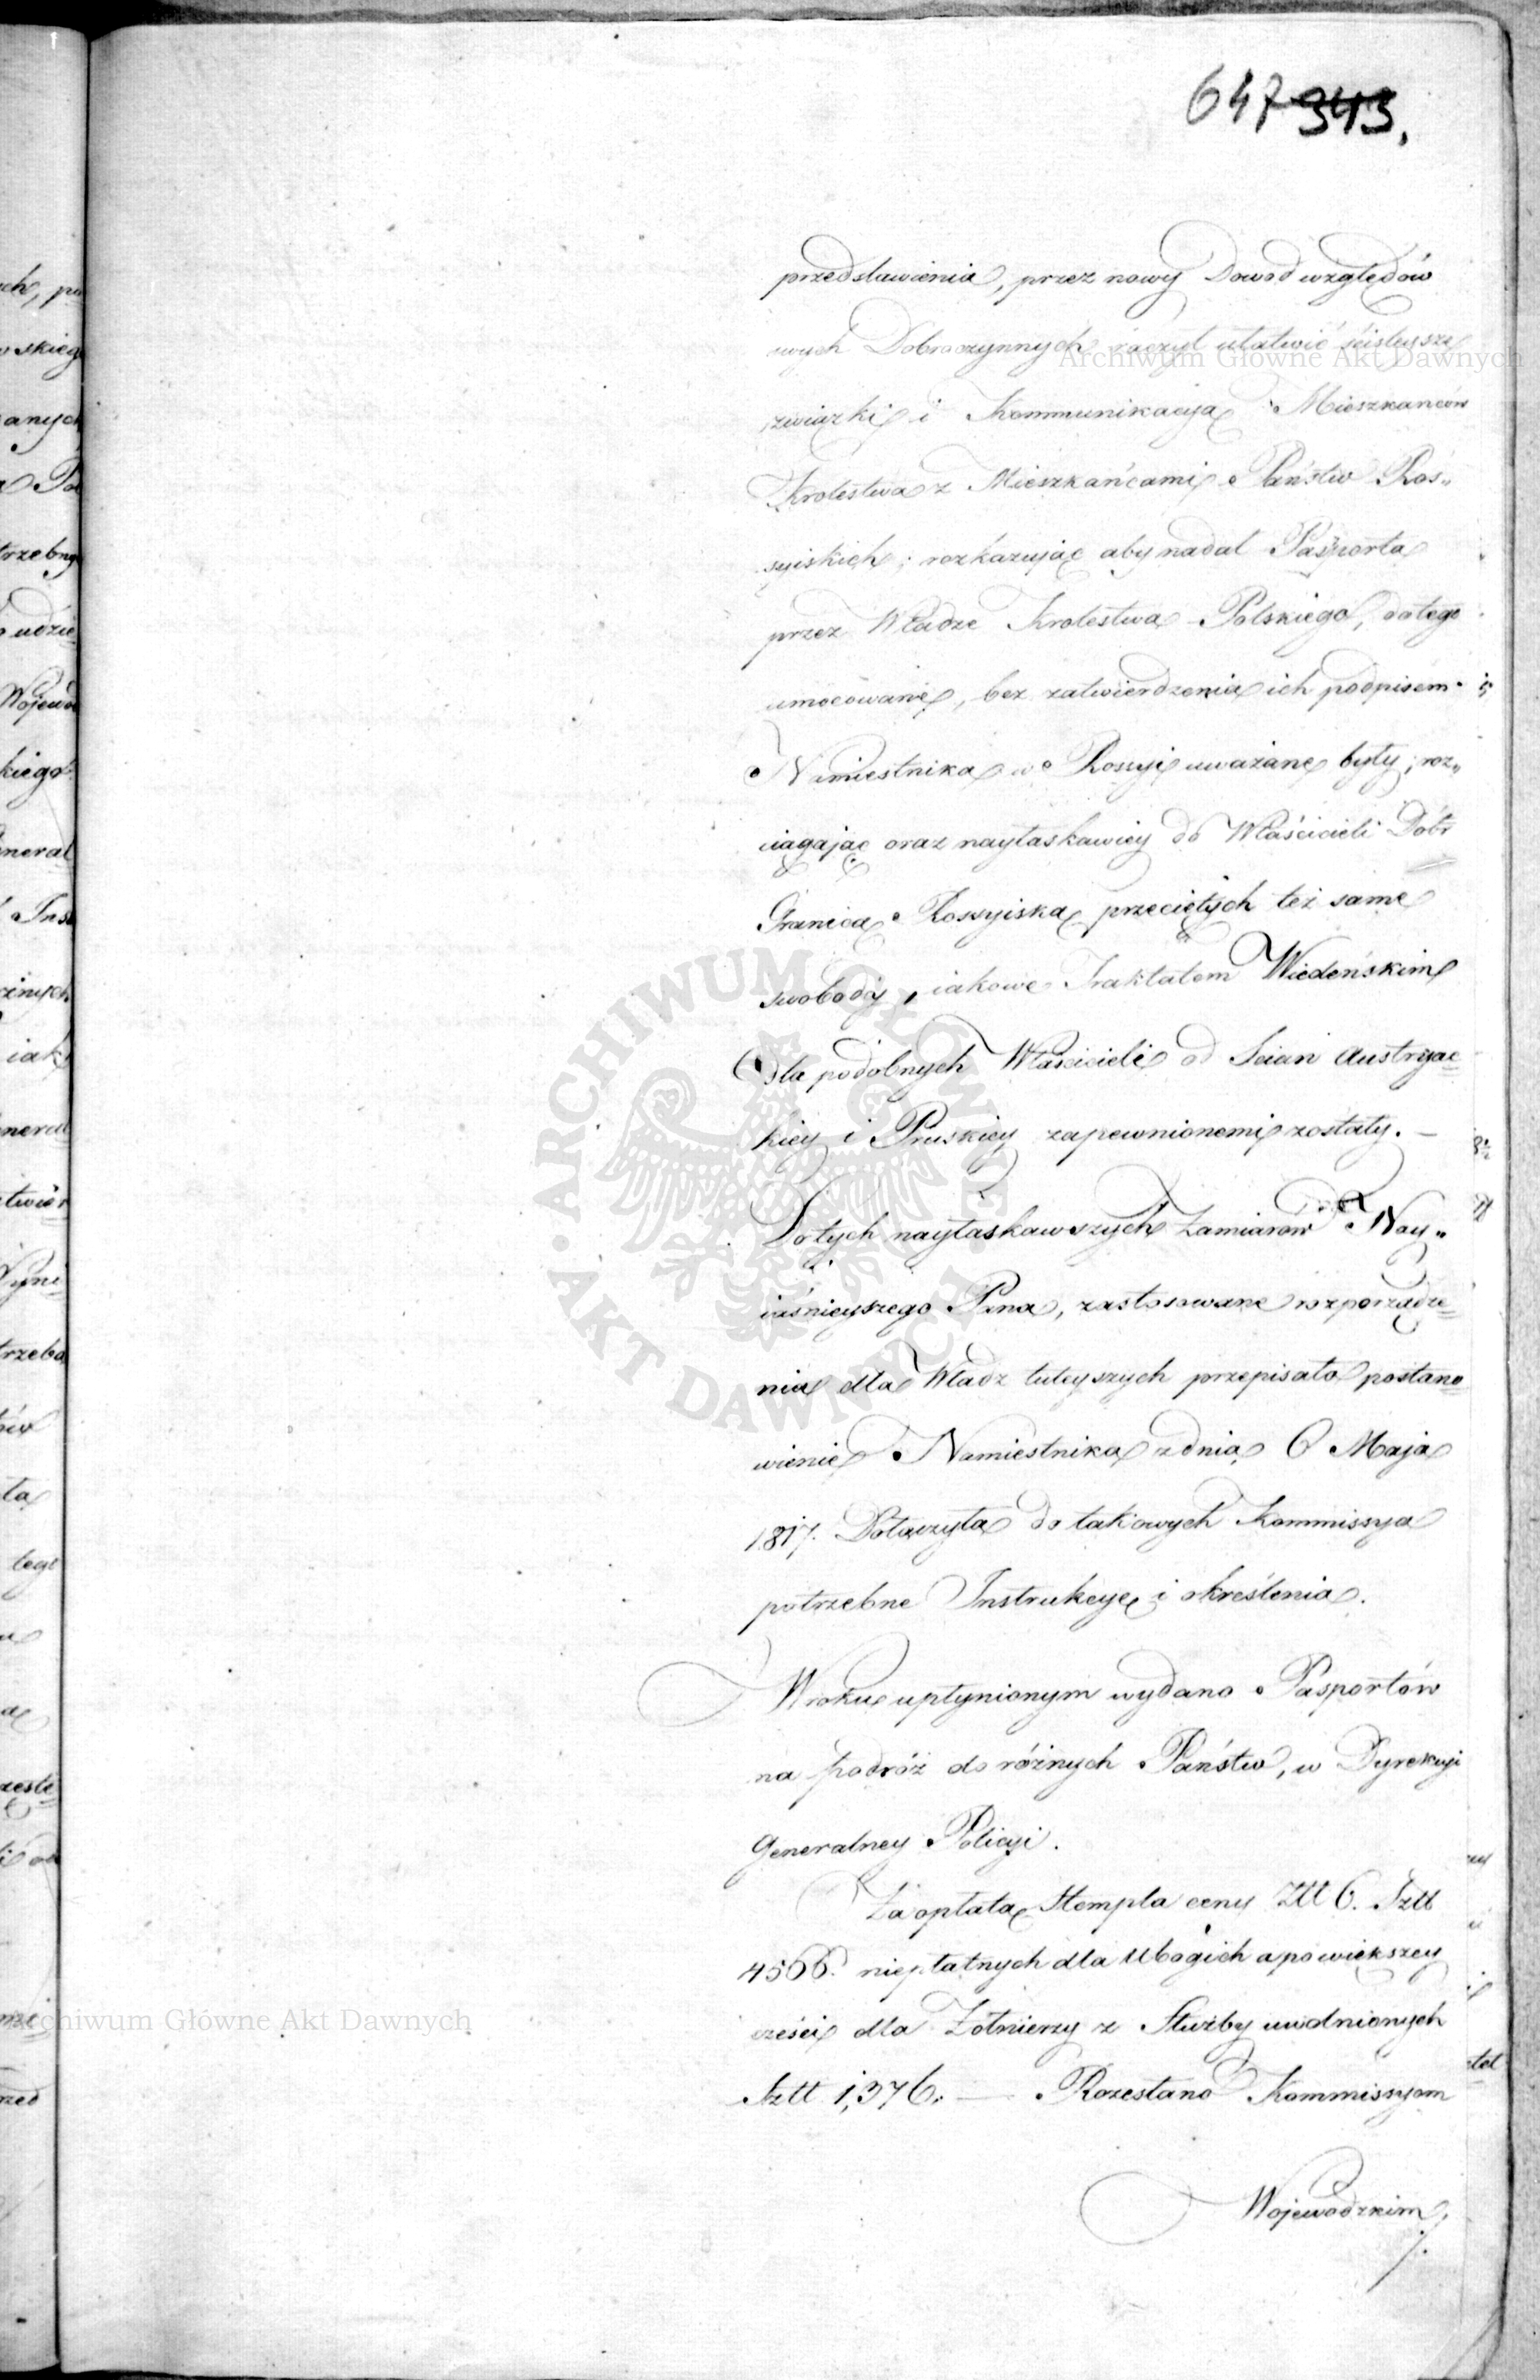 647 343.
przedstawienia, przez nowy Dowod względów
swych Dobroczynnych raczył ułatwić ściśleysze
związki i Kommunikacyą Mieszkanców
Krolestwa z Mieszkańcami Państw Ros„
syiskich; rozkazuiąc aby nadal Pasporta
przez Władze Krolestwa Polskiego, do tego
umocowane, bez zatwierdzenia ich podpisem
Namiestnika w Rossyi uważane były; roz„
ciągaiąc oraz nayłaskawiey do Właścicieli Dóbr
Granicą Rossyiską przeciętych też same
swobody, iakowe Traktatem Wiedeńskim
dla podobnych Właścicieli od Scian Austryac=
kiey i Pruskiey zapewnionemi zostały. —
Do tych nayłaskawszych Zamiarów Nay„
iaśnieyszego Pana, zastosowane rozporządze=
nia dla Władz tuteyszych przepisało postano=
wienie Namiestnika z dnia 6 Maja
1817. Dołączyła do takowych Kommissya
potrzebne Instrukcye i określenia.
W roku upłynionym wydano Pasportów
na podróż do różnych Państw, w Dyrekcyi
Generalney Policyi.
Za opłatą Stempla ceny Złł 6. Sztt
4566. niepłatnych dla Ubogich a po większey
cześci dla Żołnierzy z Służby uwolnionych
Sztt 1,376. — Rozesłano Kommissyom
Wojewodzkim
Archiwum Główne Akt Dawnych
Archiwum Główne Akt Dawnych
ARCHIWUM GŁÓWNE AKT DAWNYCH